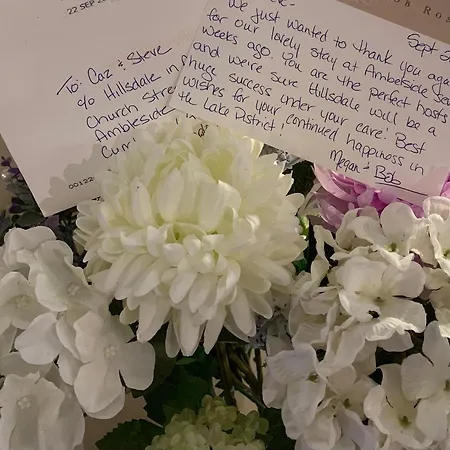 22 SEP 20
To: Caz & Steve
c/o Hillsdale in
Church Stre
Ambleside
Cum
00122
We just wanted to thank you aga
for our lovely stay at Ambleside Se
weeks ago. You are the perfect hosts
and we're sure Hillsdale will be a
huge success under your care! Best
wishes for your continued happiness in
the Lake District!
Megan & Bob
Sept 2
OB ROS